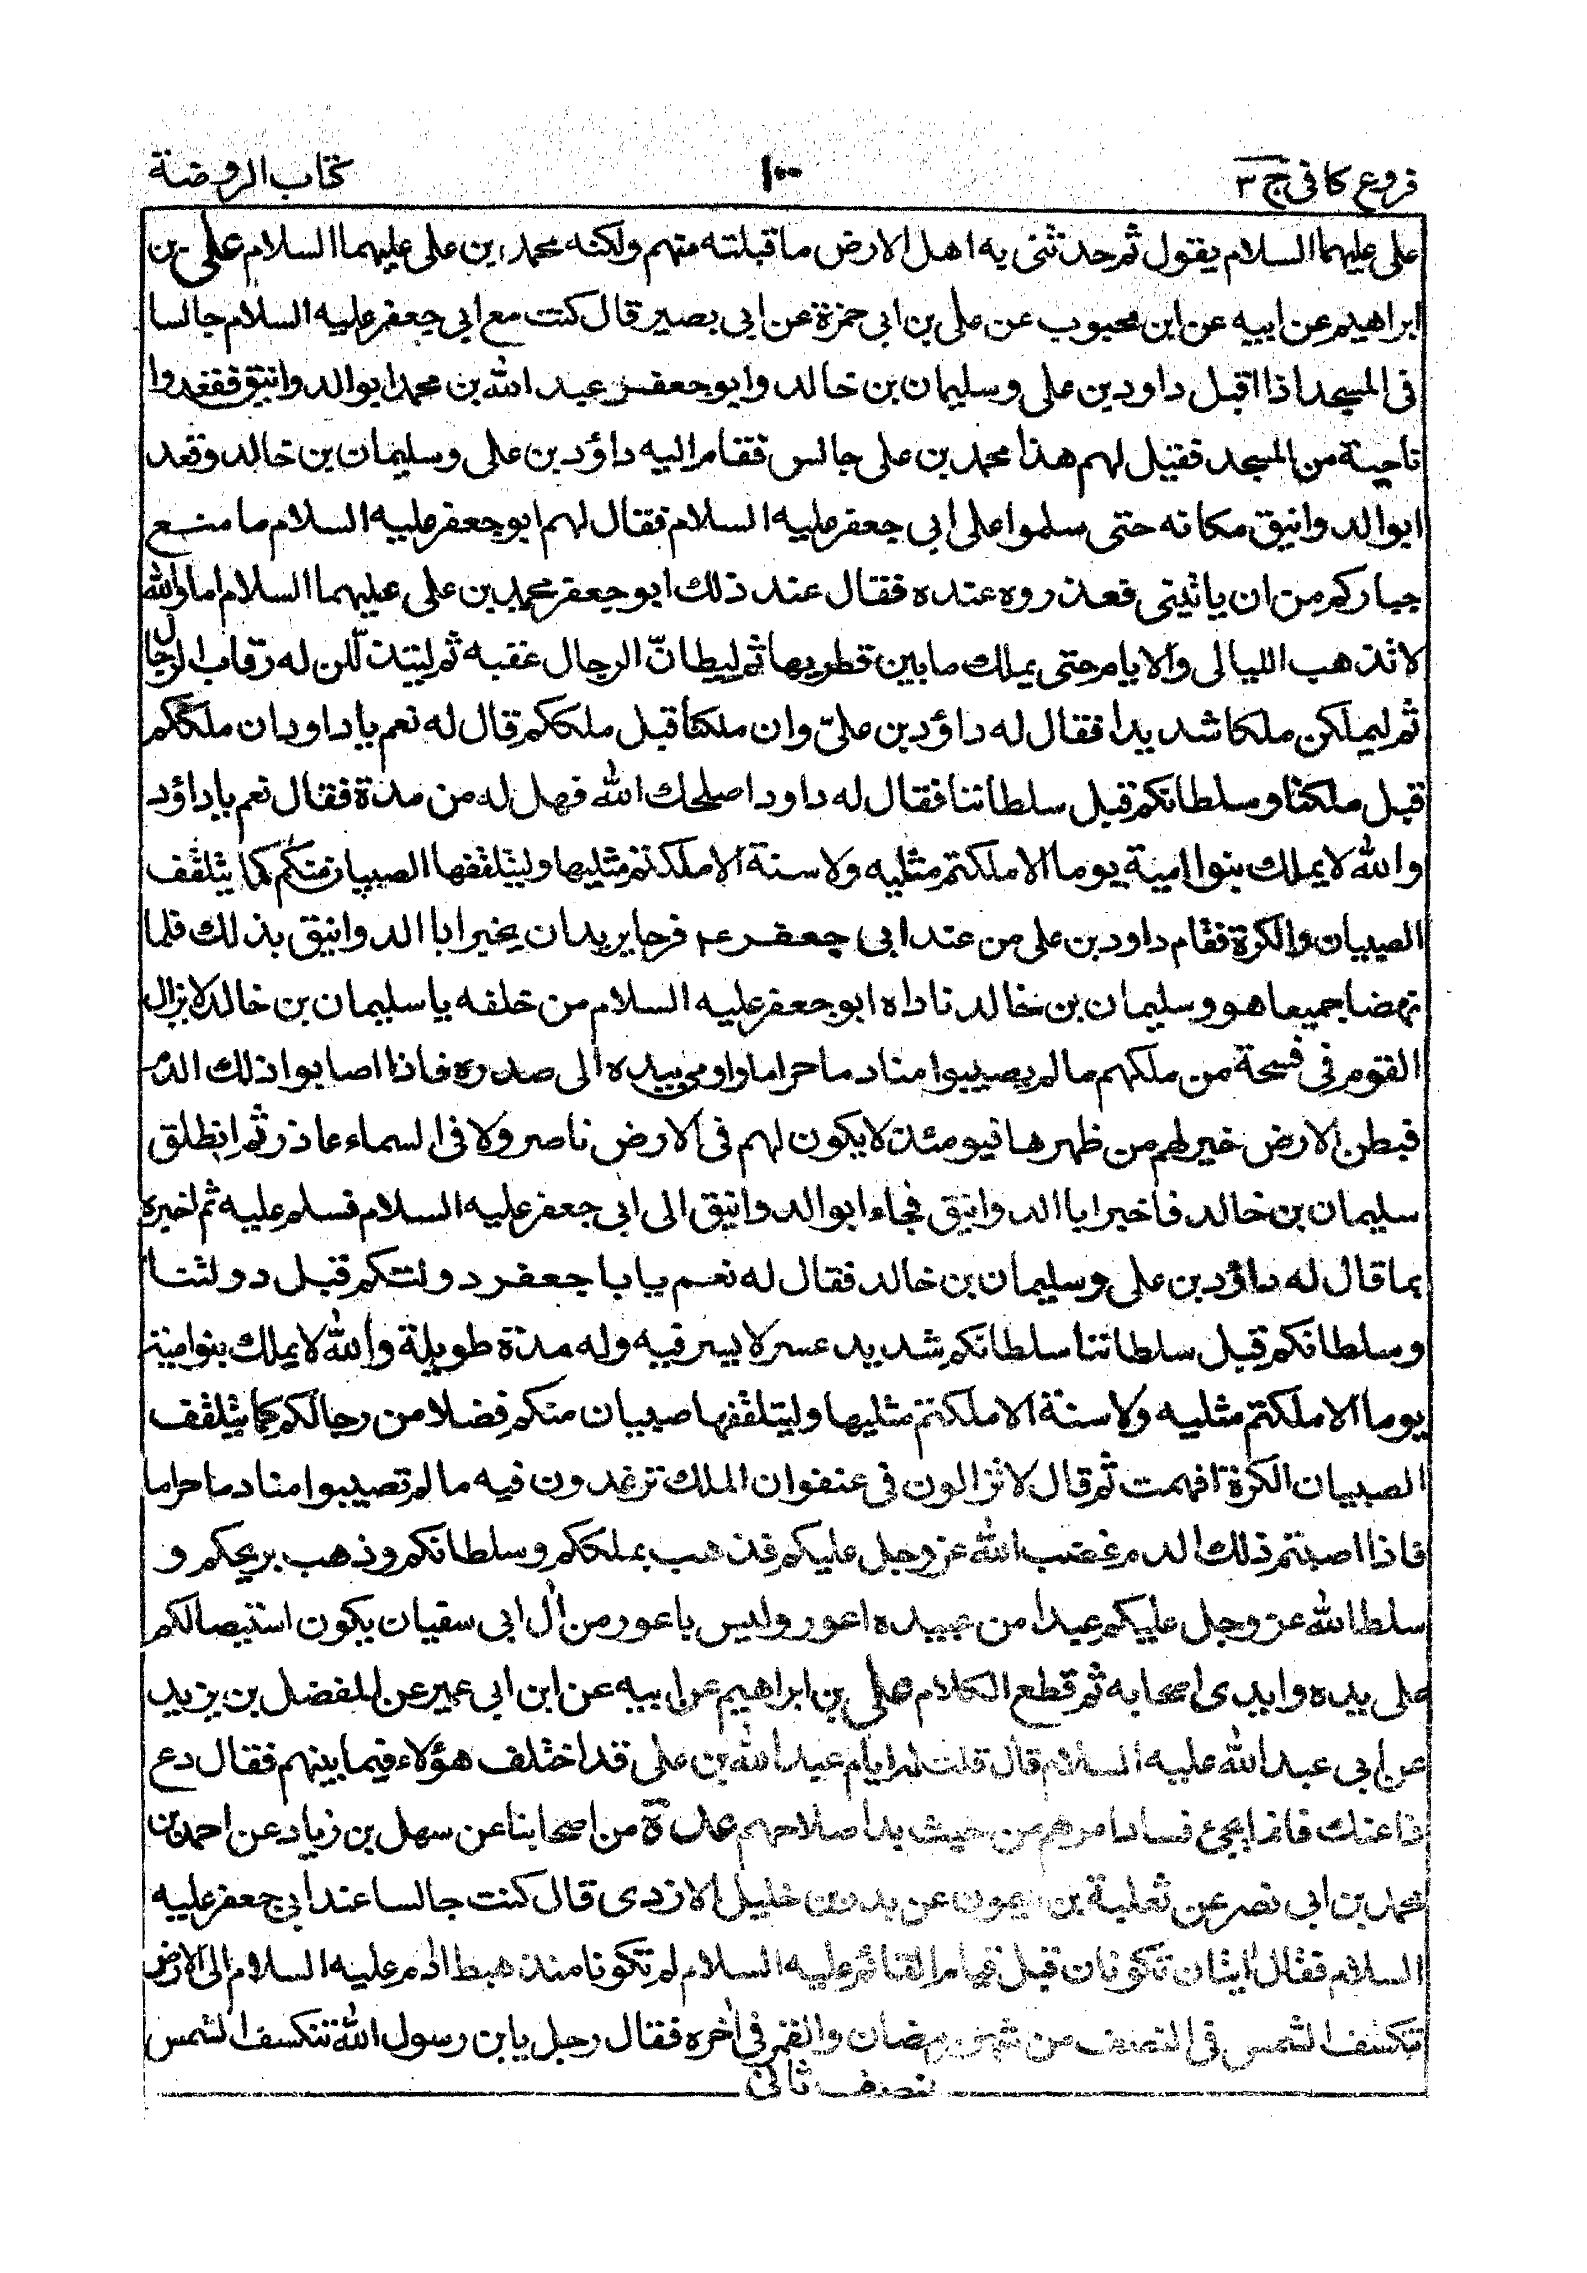 فروع كافي ج ٣
١٠٠
كتاب الروضة
على عليهما السلام يقول ثم حدثني به اهل الارض ما قبلته منهم ولكنه محمد بن على عليهما السلام على بن
ابراهيم عن ابيه عن ابن محبوب عن على بن ابى حمزة عن ابى بصير قال كنت مع ابى جعفر عليه السلام جالسا
فى المسجد اذا اقبل داود بن على وسليمان بن خالد وابو جعفر عبد الله بن محمد ابو الدوانيق فقعدوا
ناحية من المسجد فقيل لهم هذا محمد بن على جالس فقام اليه داؤد بن على وسليمان بن خالد وقعد
ابو الدوانيق مكانه حتى سلموا على ابى جعفر عليه السلام فقال لهم ابو جعفر عليه السلام ما منع
جباركم من ان ياتينى فعذروه عنده فقال عند ذلك ابو جعفر محمد بن على عليهما السلام اما والله
لا تذهب الليالى والايام حتى يملك ما بين قطريها ثم ليطانّ الرجال عقبه ثم ليتذللن له رقاب الرجال
ثم ليملكن ملكا شديدا فقال له داؤد بن علىّ وان ملكنا قبل ملككم قال له نعم يا داود ان ملككم
قبل ملكنا وسلطانكم قبل سلطاننا فقال له داود اصلحك الله فهل له من مدة فقال نعم يا داؤد
والله لا يملك بنوا امية يوما الا ملكتم مثليه ولا سنة الا ملكتم مثليها وليتلقفها الصبيان منكم كما يتلقف
الصبيان والكرة فقام داود بن على من عند ابى جعفر عم فرحا يريد ان يخبر ابا الدوانيق بذلك فلما
نهضا جميعا هو وسليمان بن خالد ناداه ابو جعفر عليه السلام من خلفه يا سليمان بن خالد لا يزال
القوم فى فسحة من ملكهم ما لم يصيبوا منا دما حراما واومى بيده الى صدره فاذا اصابوا ذلك الدم
فبطن الارض خير لهم من ظهرها فيومئذ لا يكون لهم فى الارض ناصر ولا فى السماء عاذر ثم انطلق
سليمان بن خالد فاخبر ابا الدوانيق فجاء ابو الدوانيق الى ابى جعفر عليه السلام فسلم عليه ثم اخبره
بما قال له داؤد بن على وسليمان بن خالد فقال له نعم يا با جعفر دولتكم قبل دولتنا
وسلطانكم قبل سلطاننا سلطانكم شديد عسر لا يسر فيه وله مدة طويلة والله لا يملك بنو امية
يوما الا ملكتم مثليه ولا سنة الا ملكتم مثليها وليتلقفها صبيان منكم فضلا من رجالكم كما يتلقف
الصبيان الكرة افهمت ثم قال لا تزالون فى عنفوان الملك ترغدون فيه ما لم تصيبوا منا دما حراما
فاذا اصبتم ذلك الدم غضب الله عز وجل عليكم فذهب بملككم وسلطانكم وذهب بريحكم و
سلط الله عز وجل عليكم عبدا من عبيده اعور وليس باعور من ال ابى سفيان يكون استيصالكم
على يده وايدى اصحابه ثم قطع الكلام على بن ابراهيم عن ابيه عن ابن ابى عمير عن المفضل بن يزيد
عن ابى عبد الله عليه السلام قال قلت له ايام عبد الله بن على قد اختلف هؤلاء فيما بينهم فقال دع
ذا عنك فانما يجئ فساد امرهم من حيث بدا صلاحهم عدة من اصحابنا عن سهل بن زياد عن احمد بن
محمد بن ابى نصر عن ثعلبة بن ميمون عن بدر بن خليل الازدى قال كنت جالسا عند ابى جعفر عليه
السلام فقال ايتان تكونان قبل قيام القائم عليه السلام لم تكونا منذ هبط ادم عليه السلام الى الارض
تكسف الشمس فى النصف من شهر رمضان والقمر فى اخره فقال رجل يا بن رسول الله تنكسف الشمس
نصف ثانى